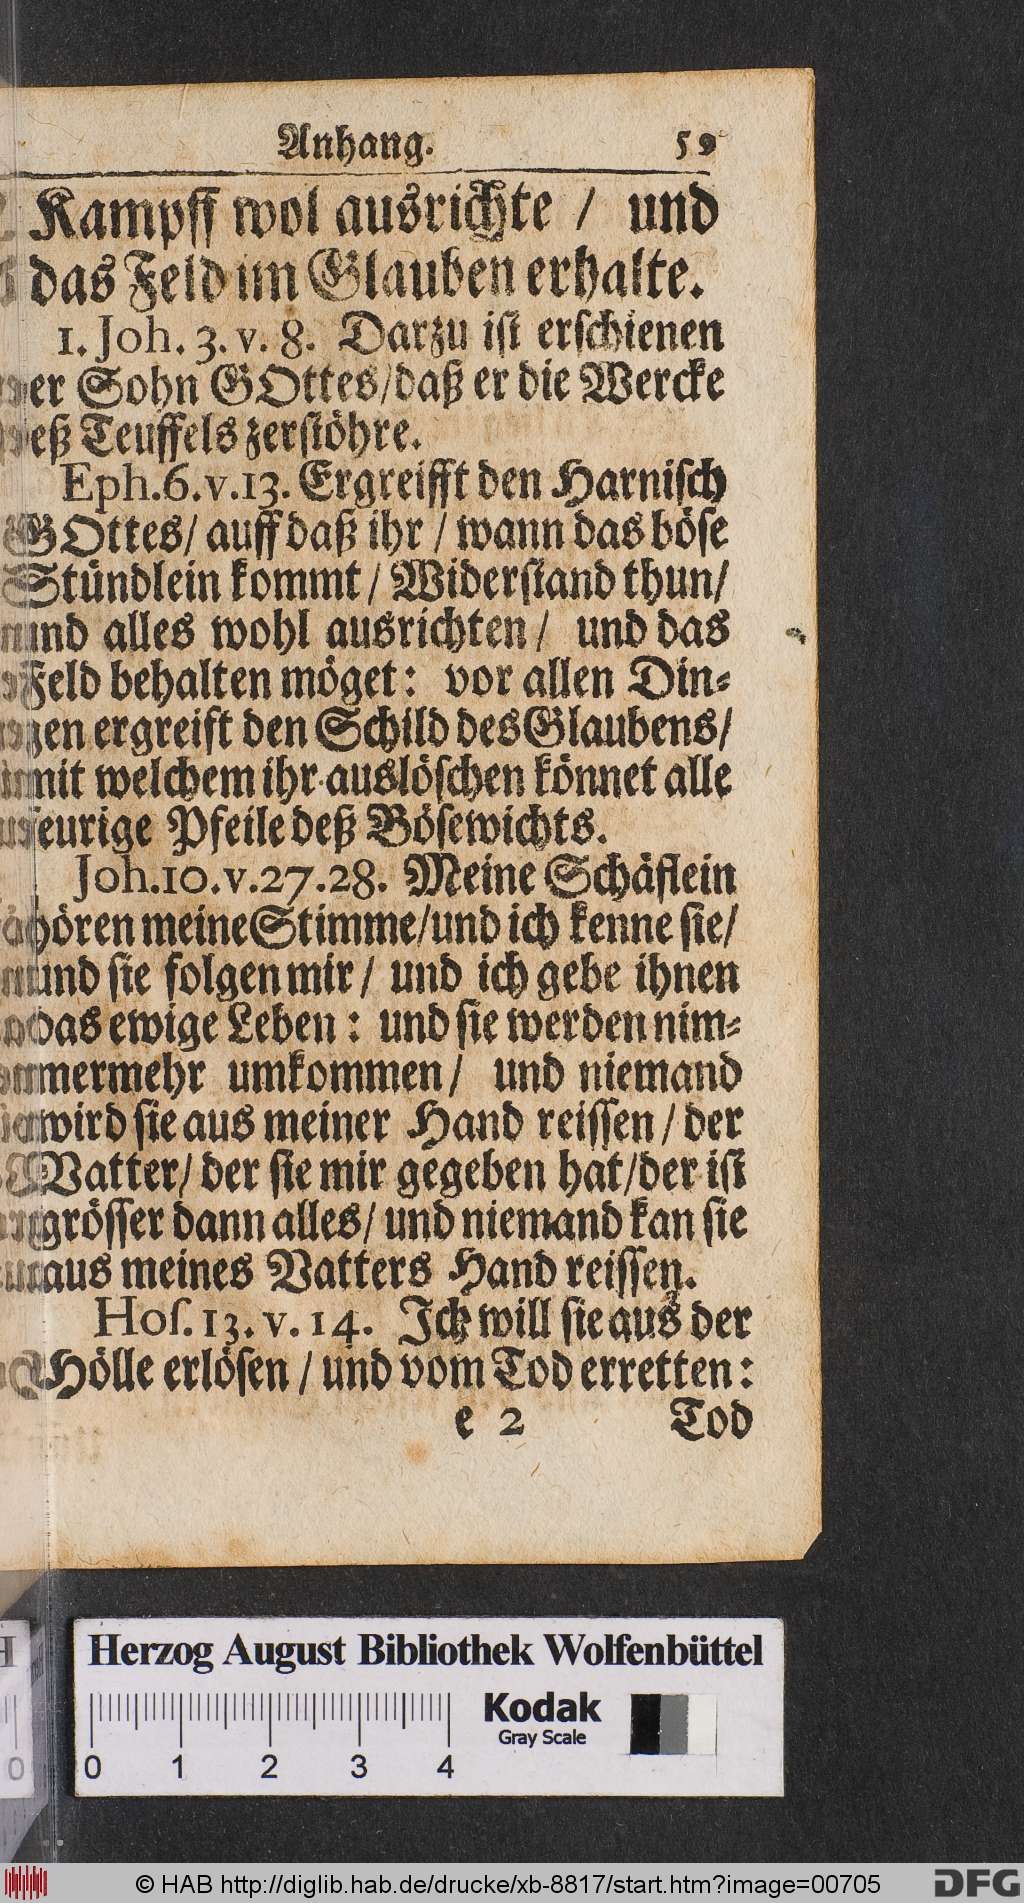 Anhang. 59
Kampff wol ausrichte / und
das Feld im Glauben erhalte.
1. Joh. 3. v. 8. Darzu ist erschienen
der Sohn GOttes/daß er die Wercke
deß Teuffels zerstöhre.
Eph.6.v.13. Ergreifft den Harnisch
GOttes/ auff daß ihr / wann das böse
Stündlein kommt / Widerstand thun/
und alles wohl ausrichten / und das
Feld behalten möget: vor allen Din-
gen ergreift den Schild des Glaubens/
mit welchem ihr auslöschen könnet alle
feurige Pfeile deß Bösewichts.
Joh.10.v.27.28. Meine Schäflein
hören meine Stimme/und ich kenne sie/
und sie folgen mir / und ich gebe ihnen
das ewige Leben : und sie werden nim-
mermehr umkommen / und niemand
wird sie aus meiner Hand reissen / der
Vatter/ der sie mir gegeben hat/der ist
grösser dann alles/ und niemand kan sie
aus meines Vatters Hand reissen.
Hos.13.v.14. Ich will sie aus der
Hölle erlösen / und vom Tod erretten:
e 2 Tod
Herzog August Bibliothek Wolfenbüttel
Kodak
Gray Scale
0 1 2 3 4
0
© HAB http://diglib.hab.de/drucke/xb-8817/start.htm?image=00705
DFG